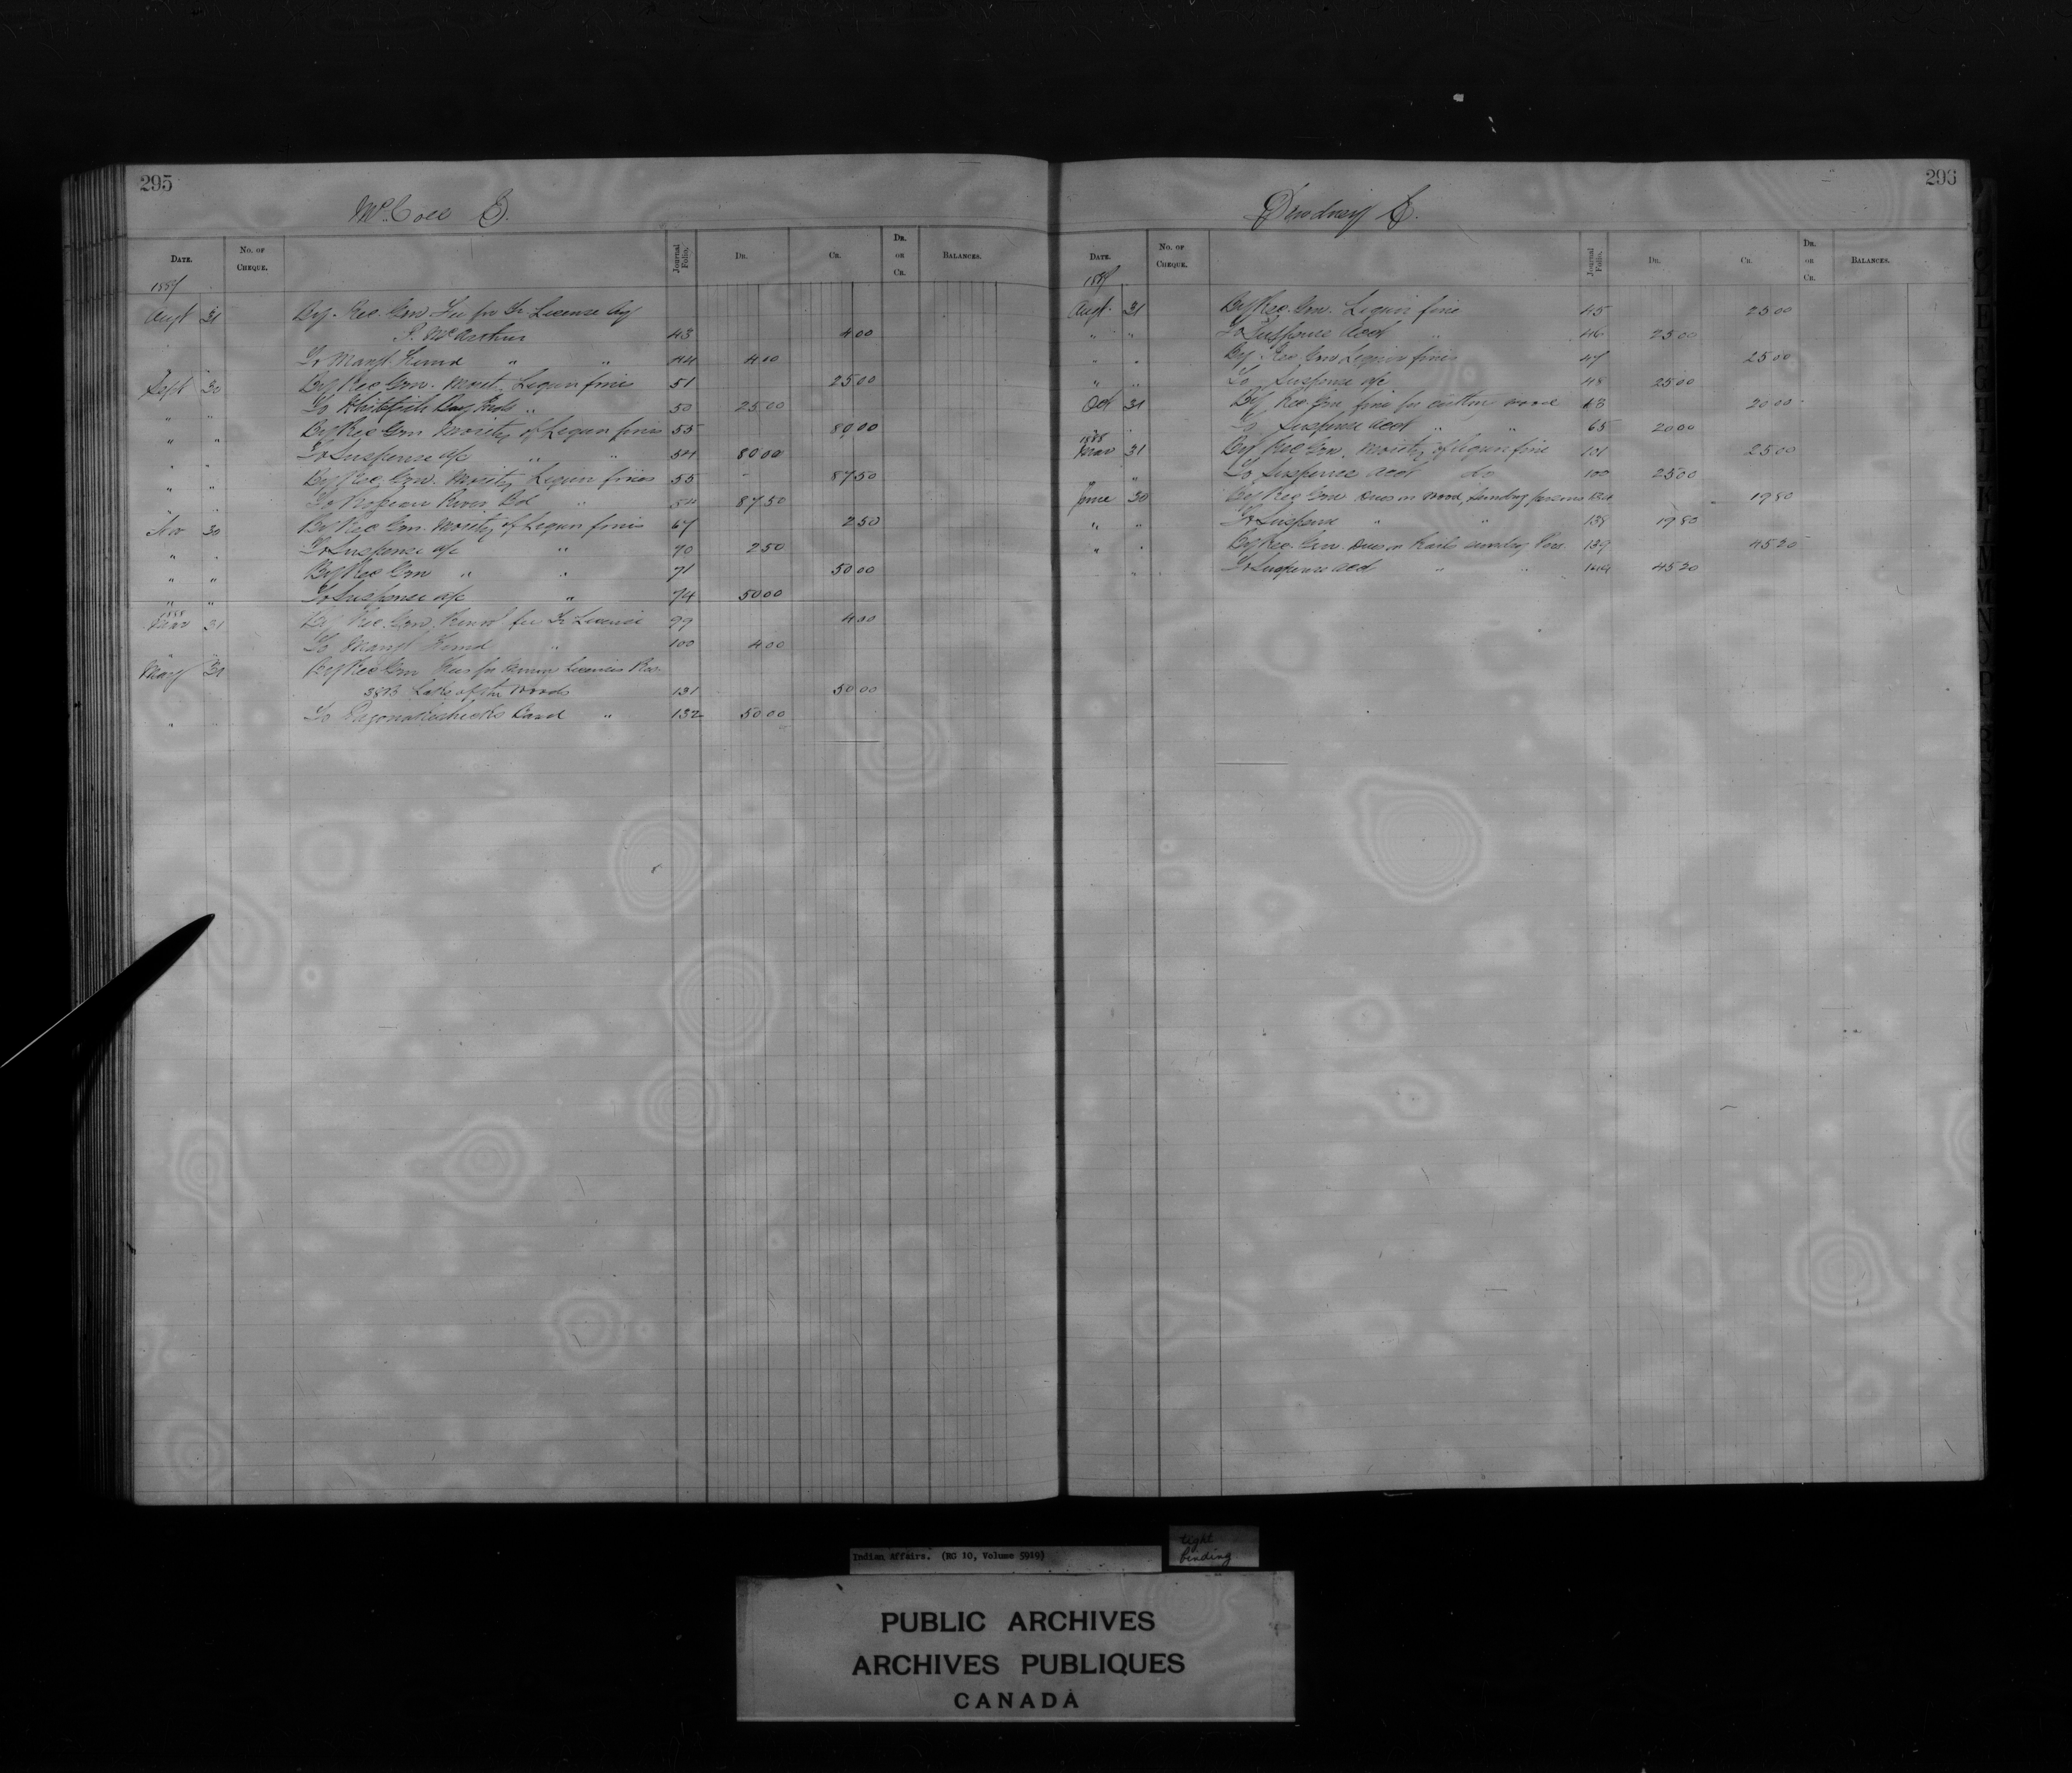 295
McColl E.
DATE.
No. OF CHEQUE.
Journal Folio.
DR.
CR.
DR. OR CR.
BALANCES.
1887
Augt 31 By Rec. Gen. Fee for Tr License Ag
P. McArthur 43 4 00
To Mangt Fund " " 44 4 00
Sept 30 By Rec Gen. Moiety Liquor fines 51 25 00
" " To Whitefish Bay Inds " 50 25 00
" " By Rec Gen Moiety of Liquor fines 55 80 00
" " To Suspense a/c " " 54 80 00
" " By Rec. Gen. Moiety Liquor fines 55 87 50
" " To River Bd " " 54 87 50
Nov 30 By Rec Gen. Moiety of Liquor fines 67 2 50
" " To Suspense a/c " 70 2 50
" " By Rec Gen " " 71 50 00
" " To Suspense a/c " 74 50 00
1888
Mar 31 By Rec. Gen. Renewl fee Tr License 99 4 00
" " To Mangt Fund " 100 4 00
May 31 By Rec Gen Fees for Licenses Res.
38B Lake of the Woods 131 50 00
" " To Band " 132 50 00
296
Dewdney E.
DATE.
No. OF CHEQUE.
Journal Folio.
DR.
CR.
DR. OR CR.
BALANCES.
1887
Augt. 31 By Rec. Gen. Liquor fine 45 25 00
" " To Suspense Acct " 46 25 00
" " By Rec Gen Liquor fines 47 25 00
" " To Suspense a/c 48 25 00
Oct 31 By Rec. Gen fine for cutting wood 63 20 00
" " To Suspense Acct " " 65 20 00
1888
Mar 31 By Rec Gen. Moiety of Liquor fine 101 25 00
" " To Suspense Acct do 100 25 00
June 30 By Rec Gen Dues on Wood, Sundry persons 19 80
" " To Suspense " " 138 19 80
" " By Rec. Gen Dues on Rails sundry Pers. 139 45 20
" " To Suspense Acct " " 45 20
Indian Affairs. (RG 10, Volume 5919)
tight
binding
PUBLIC ARCHIVES
ARCHIVES PUBLIQUES
CANADA